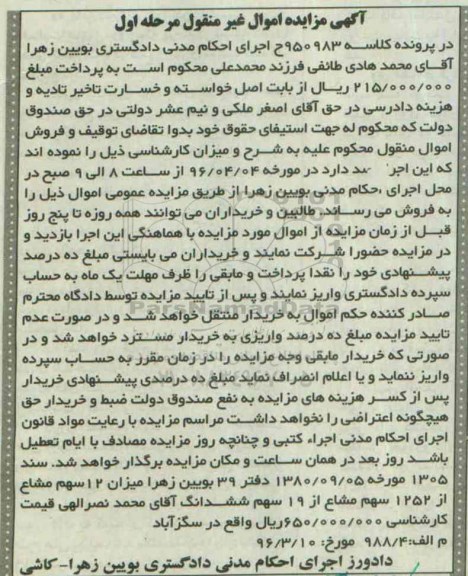 آگهی مزایده اموال غیر منقول مرحله اول
در پرونده کلاسه ۹۵۰۹۸۳ح اجرای احکام مدنی دادگستری بویین زهرا
آقای محمد هادی طائفی فرزند محمدعلی محکوم است به پرداخت مبلغ
۲۱۵/۰۰۰/۰۰۰ ریال از بابت اصل خواسته و خسارت تاخیر تادیه و
هزینه دادرسی در حق آقای اصغر ملکی و نیم عشر دولتی در حق صندوق
دولت که محکوم له جهت استیفای حقوق خود بدوا تقاضای توقیف و فروش
اموال منقول محکوم علیه به شرح و میزان کارشناسی ذیل را نموده اند
که این اجر دارد در مورخه ۹۶/۰۴/۰۴ از ساعت ۸ الی ۹ صبح در
محل اجرای احکام مدنی بویین زهرا از طریق مزایده عمومی اموال ذیل را
به فروش می رساند. طالبین و خریداران می توانند همه روزه تا پنج روز
قبل از زمان مزایده از اموال مورد مزایده با هماهنگی این اجرا بازدید و
در مزایده حضورا شرکت نمایند و خریداران می بایستی مبلغ ده درصد
پیشنهادی خود را نقدا پرداخت و مابقی را ظرف مهلت یک ماه به حساب
سپرده دادگستری واریز نمایند و پس از تایید مزایده توسط دادگاه محترم
صادر کننده حکم اموال به خریدار منتقل خواهد شد و در صورت عدم
تایید مزایده مبلغ ده درصد واریزی به خریدار مسترد خواهد شد و در
صورتی که خریدار مابقی وجه مزایده را در زمان مقرر به حساب سپرده
واریز ننماید و یا اعلام انصراف نماید مبلغ ده درصدی پیشنهادی خریدار
پس از کسر هزینه های مزایده به نفع صندوق دولت ضبط و خریدار حق
هیچگونه اعتراضی را نخواهد داشت مراسم مزایده با رعایت مواد قانون
اجرای احکام مدنی اجراء کتبی و چنانچه روز مزایده مصادف با ایام تعطیل
باشد روز بعد در همان ساعت و مکان مزایده برگذار خواهد شد. سند
۱۳۰۵ مورخه ۱۳۸۰/۰۹/۰۵ دفتر ۳۹ بویین زهرا میزان ۱۲سهم مشاع
از ۱۲۵۲ سهم مشاع از ۱۹ سهم ششدانگ آقای محمد نصرالهی قیمت
کارشناسی ۶۵۰/۰۰۰/۰۰۰ریال واقع در سگزآباد
م الف:۹۸۸/۴ مورخ: ۹۶/۳/۱۰
دادورز اجرای احکام مدنی دادگستری بویین زهرا- کاشی